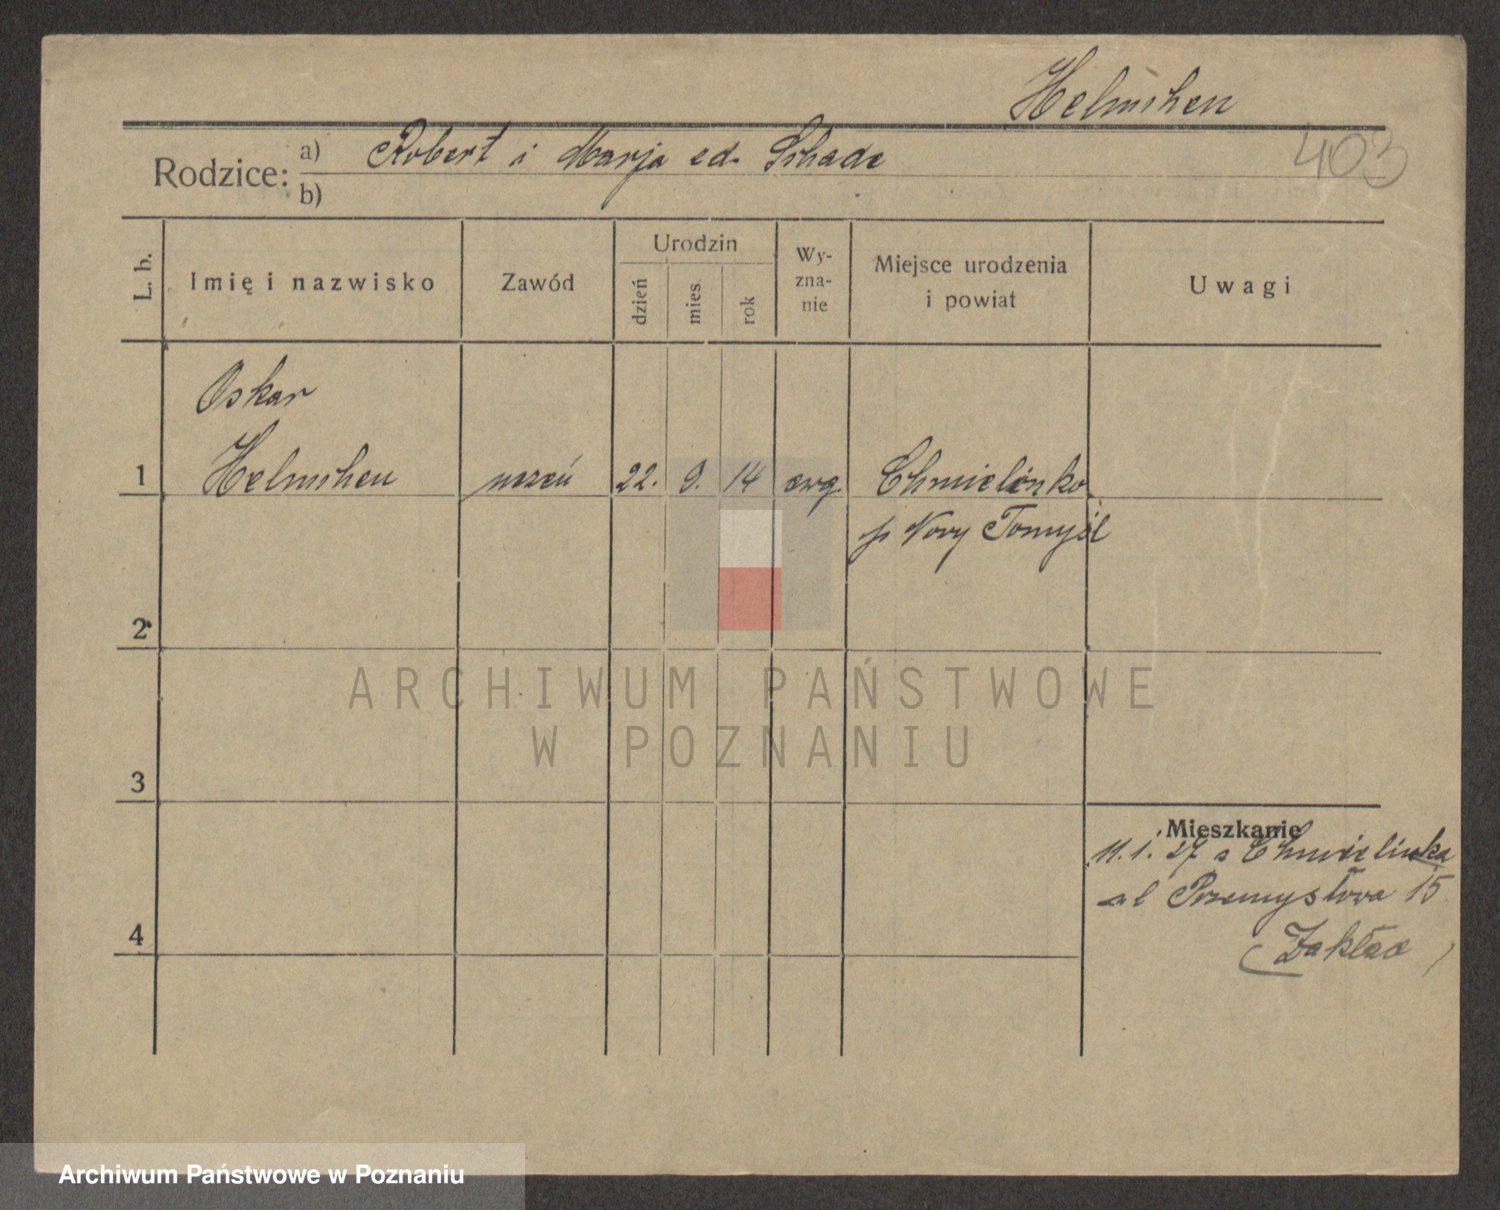 Helmchen
403
Rodzice: a) Robert i Marja zd. Schade
b)
L. b.
Imię i nazwisko
Zawód
Urodzin
dzień
mies.
rok
Wy-
zna-
nie
Miejsce urodzenia
i powiat
Uwagi
Oskar
1 Helmchen uczeń 22. 9. 14 ewg. Chmielinko
p Nowy Tomyśl
2
3
4
Mieszkanie
11.1.27 z Chmielinka
ul Przemysłowa 15
(Zakład)
ARCHIWUM PAŃSTWOWE
W POZNANIU
Archiwum Państwowe w Poznaniu